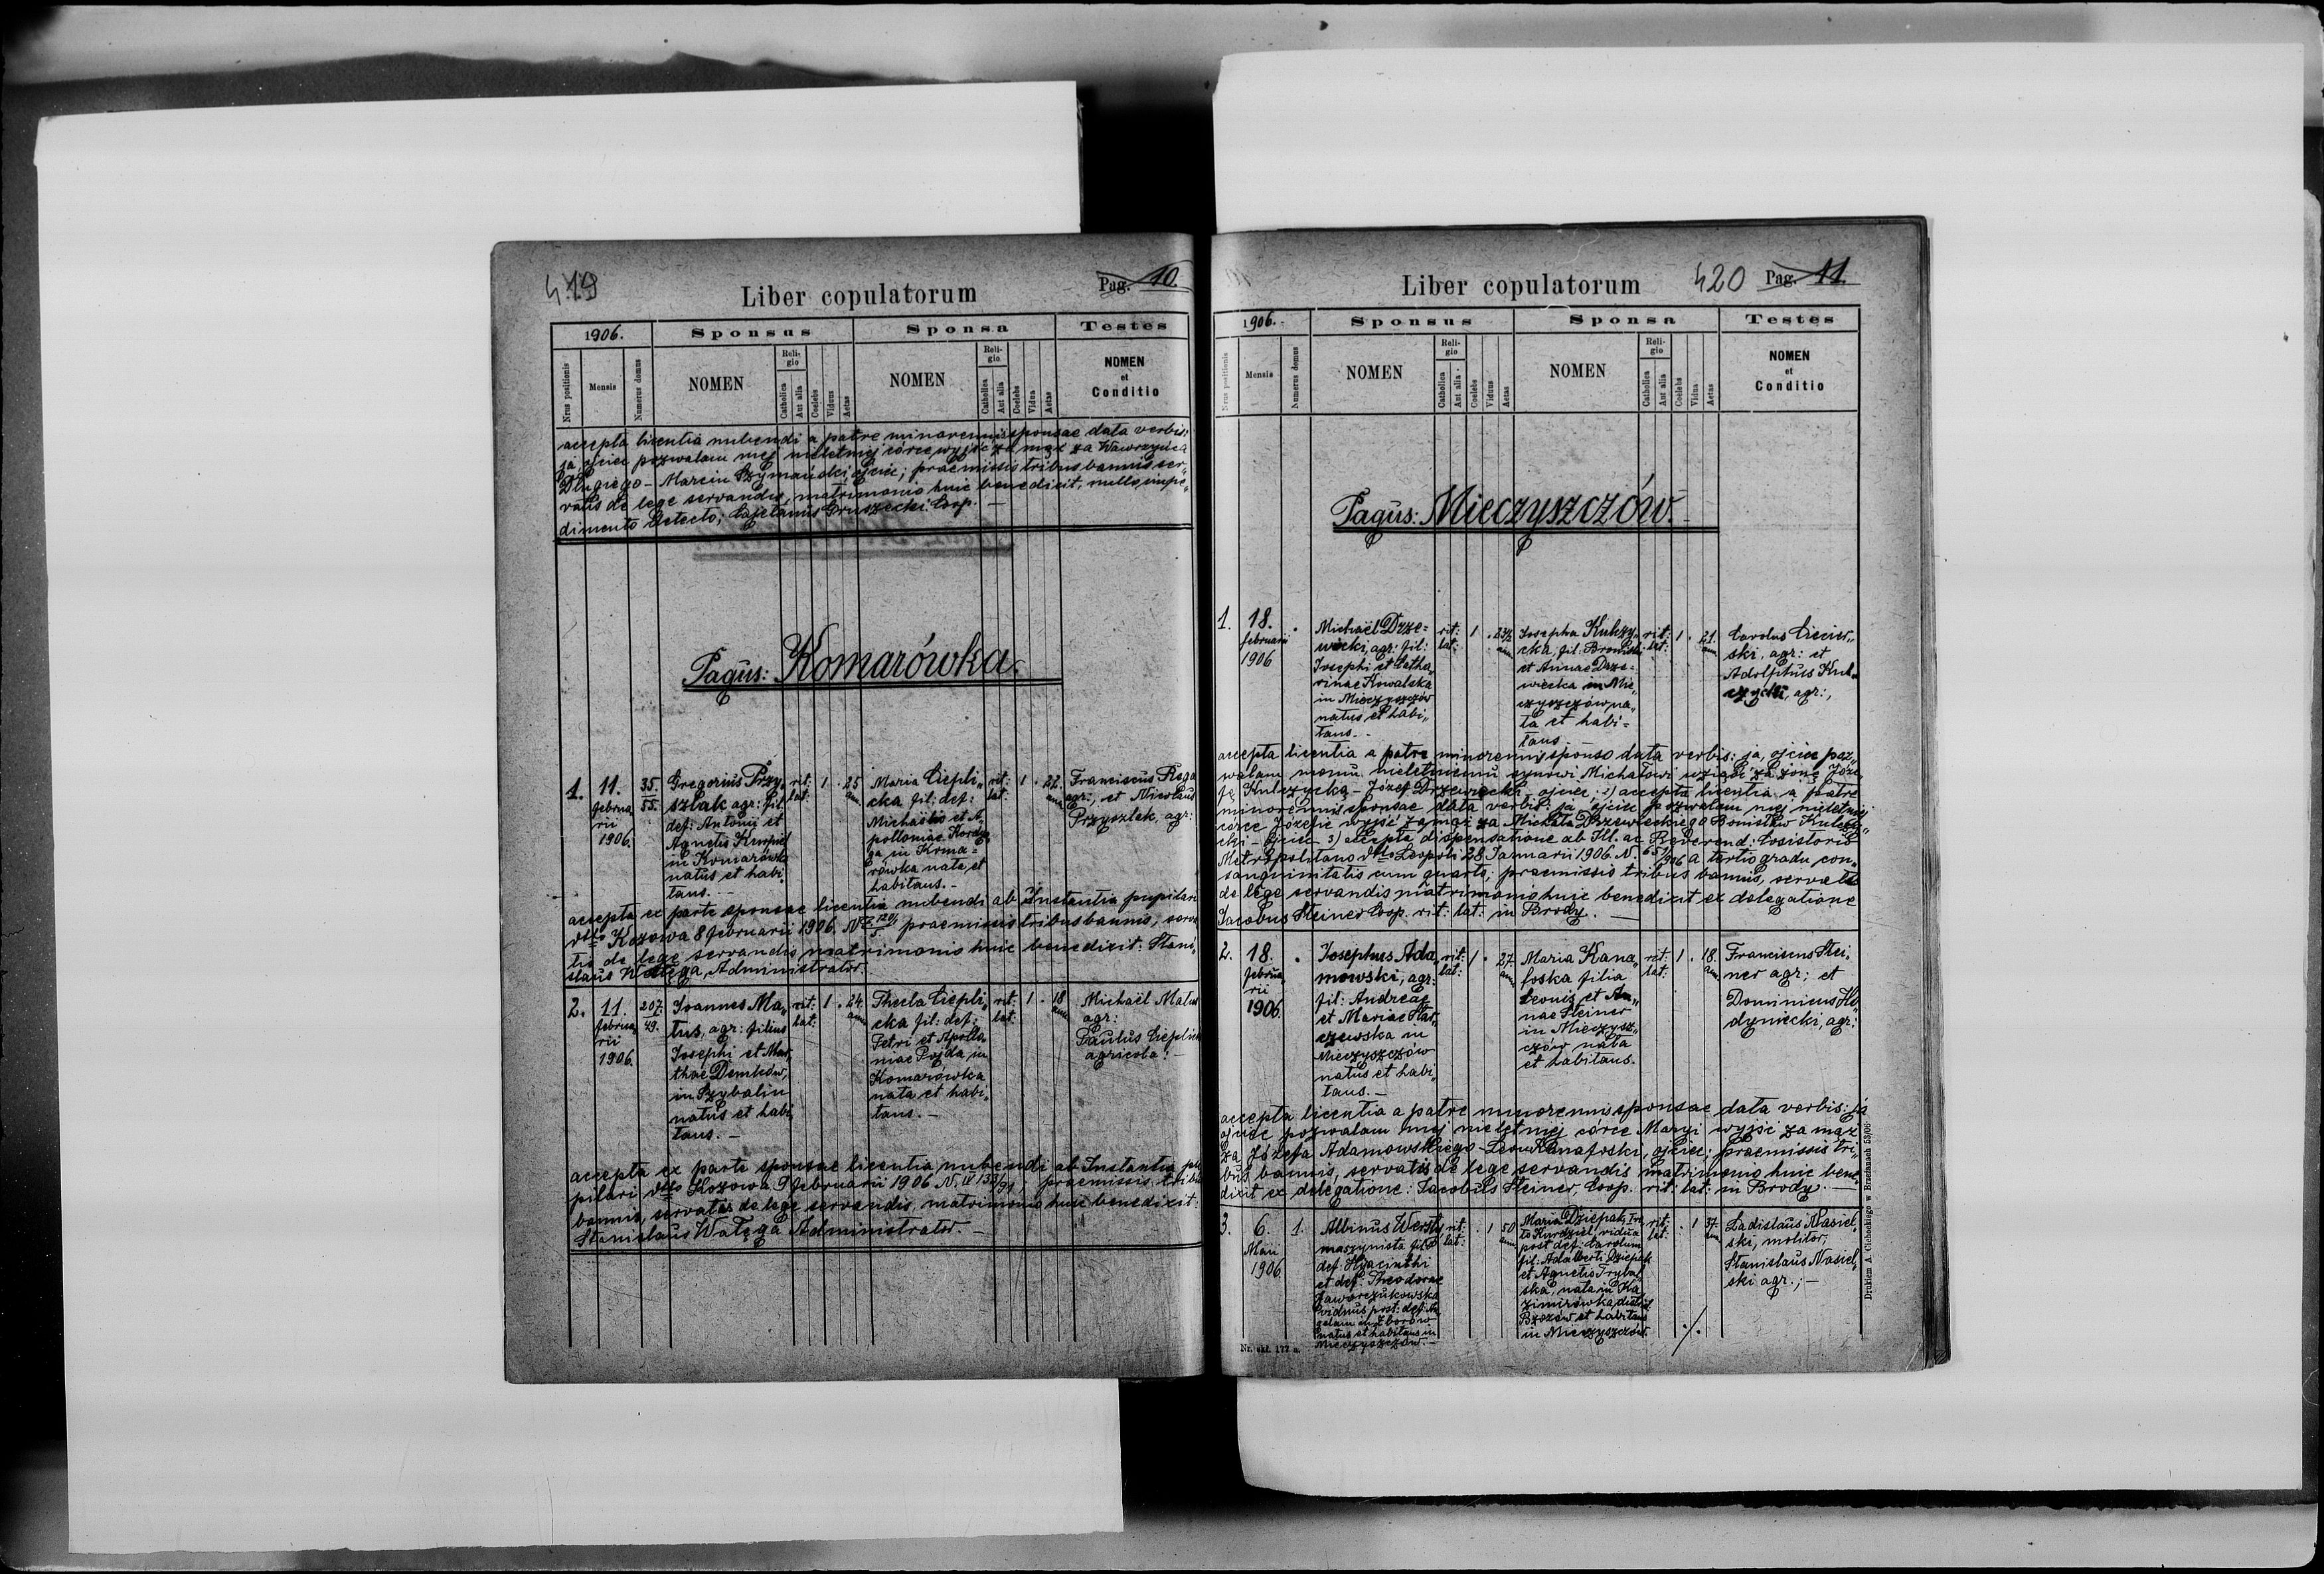 419
Liber copulatorum
Pag. 10.
1906.
Sponsus
Sponsa
Testes
Nrus positionis
Mensis
Numerus domus
NOMEN
Religio
Catholica
Aut alia
Coelebs
Viduus
Aetas
NOMEN
Religio
Catholica
Aut alia
Coelebs
Vidua
Aetas
NOMEN
et
Conditio
accepta licentia nubendi a patre minorennis sponsae data verbis:
ja ojciec pozwalam mej nieletniej córce wyjść za mąż za Wawrzyńca
Długiego - Marcin Szymański, ojciec; praemissis tribus bannis ser„
vatis de lege servandis, matrimonio huic benedixit, nullo impe„
dimento detecto; Cajetanus Gruszecki Coop. —
Pagus: Komarówka.
1.
11.
februa
rii
1906.
35.
55.
Gregorius Przy„
szlak agr: fil:
def: Antonii et
Agnetis
in Komarówka
natus et habi„
tans. —
rit:
lat:
1
.
25
ann.
Maria Ciepli„
cka fil: def:
Michaëlis et A„
polloniae
in Koma=
rówka nata et
habitans. -
rit:
lat:
1
.
22.
ann.
Franciscus
agr:, et Nicolaus
Przyszlak, agr:
accepta ex parte sponsae licentia nubendi ab Instantia pupilari
dtto Kozowa 8 februarii 1906. N praemissis tribus bannis, serva
tis de lege servandis matrimonio huic benedixit: Stani„
slaus Wałęga, Administrator.
2.
11.
februa
rii
1906.
207.
49.
Joannes Ma„
tus, agr: filius
Josephi et Mar„
thae Demków,
in Szybalin
natus et habi„
tans. —
rit:
lat:
1
.
24.
ann.
Thecla Ciepli„
cka fil: def:
Petri et Apollo
niae Pojda in
Komarówka
nata et habi„
tans. —
rit:
lat:
1
.
18
ann.
Michaël Matus
agr:
Paulus Cieplicki
agricola. —
accepta ex parte sponsae licentia nubendi ab Instantia pu
pilari dtto Kozowa 9 februarii 1906 N. praemissis tribus
bannis, servatis de lege servandis, matrimonio huic benedixit:
Stanislaus Wałęga Administrator. —
Liber copulatorum
420
Pag. 11.
1906.
Sponsus
Sponsa
Testes
Nrus positionis
Mensis
Numerus domus
NOMEN
Religio
Catholica
Aut alia
Coelebs
Viduus
Aetas
NOMEN
Religio
Catholica
Aut alia
Coelebs
Vidua
Aetas
NOMEN
et
Conditio
Pagus: Mieczyszczów.
1.
18.
februarii
1906
.
Michaël Drze=
wicki, agr: fil:
Josephi et Catha„
rinae Kowalska
in Mieczyszczów
natus et habi„
tans. -
rit:
lat:
1
.
23½
ann
Josepha Kulczy„
cka, fil: Bronislai
et Annae Drze=
wiecka in Mie„
czyszczów na„
ta et habi=
tans. -
rit:
lat:
1
.
21.
ann
Carolus Ciesiel„
ski, agr: et
Adolphus Kul„
czycki, agr:,
accepta licentia a patre minorennis sponso data verbis: ja, ojciec poz„
walam memu nieletniemu synowi Michałowi wziąść za żonę Józe„
fę Kulczycką - Józef Drzewiecki - ojciec; 2) accepta licentia a patre
minorennis sponsae data verbis: ja ojciec pozwalam mej nieletniej
córce Józefie wyjść zamąż za Michała Drzewieckiego Bonisław Kulczy„
cki - ojciec 3) accepta dispensatione ab Ill. ac Reverend: Cosistorio
Metropolitano dtto Leopoli 28 Januarii 1906 N. a tertio gradu con„
sanguinitatis cum quarto; praemissis tribus bannis, servatis
de lege servandis matrimonio huic benedixit ex delegatione
Jacobus Steiner Coop. rit: lat: in Brody. —
2.
18.
februa
rii
1906
.
Josephus Ada„
mowski, agr:
fil: Andreae
et Mariae Star„
czewska in
Mieczyszczów
natus et habi„
tans. —
rit:
lat:
1
.
27.
ann
Maria Kana„
foska filia
Leonis et An„
nae Steiner
in Mieczysz„
czów nata
et habitans.
rit:
lat:
1
.
18
ann
Franciscus Stei„
ner agr: et
Dominicus Ho„
dyniecki, agr:
accepta licentia a patre minorennis sponsae data verbis: ja
ojciec pozwalam mej nieletniej córce Maryi wyjść za mąż
za Józefa Adamowskiego - Leon Kanafoski, ojciec; praemissis tri„
bus bannis, servatis de lege servandis matrimonio huic bene„
dixit ex delegatione: Jacobus Steiner, Coop. rit: lat: in Brody. —
3.
6.
Maii
1906
1.
Albinus Wersty
maszynista filius
def: Hyacinthi
et def: Theodorae
Jaworczukowska
viduus post: def:
natus et habitans in
Mieczyszczów. —
rit:
lat:
.
1
50
ann
Maria Dziepak, I vo„
to Kurdziel, vidua
post def: Carolum
fil: Adalberti Dziepak
et Agnetis Trybal„
ska, nata in Ka„
zimirówka, district
Brzozów et habitans
in Mieczyszczów.
rit:
lat:
.
1
37.
ann
Ladislaus Nasiel„
ski, molitor;
Stanislaus Nasiel„
ski agr:; —
./.
Nr. skł. 177 a.
Drukiem A. Cichockiego w Brzeżanach 53/06